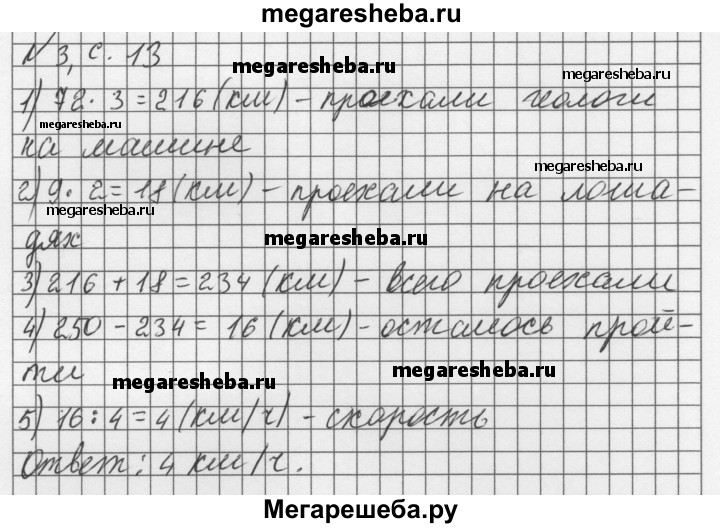 megaresheba.ru
№ 3, с. 13
megaresheba.ru
megaresheba.ru
1) 72 · 3 = 216 (км) - проехали геологи
megaresheba.ru
на машине
megaresheba.ru
2) 9 · 2 = 18 (км) - проехали на лоша-
megaresheba.ru
дях
megaresheba.ru
3) 216 + 18 = 234 (км) - всего проехали
4) 250 - 234 = 16 (км) - осталось прой-
ти
megaresheba.ru
megaresheba.ru
5) 16 : 4 = 4 (км/ч) - скорость
Ответ: 4 км/ч.
Мегарешеба.ру